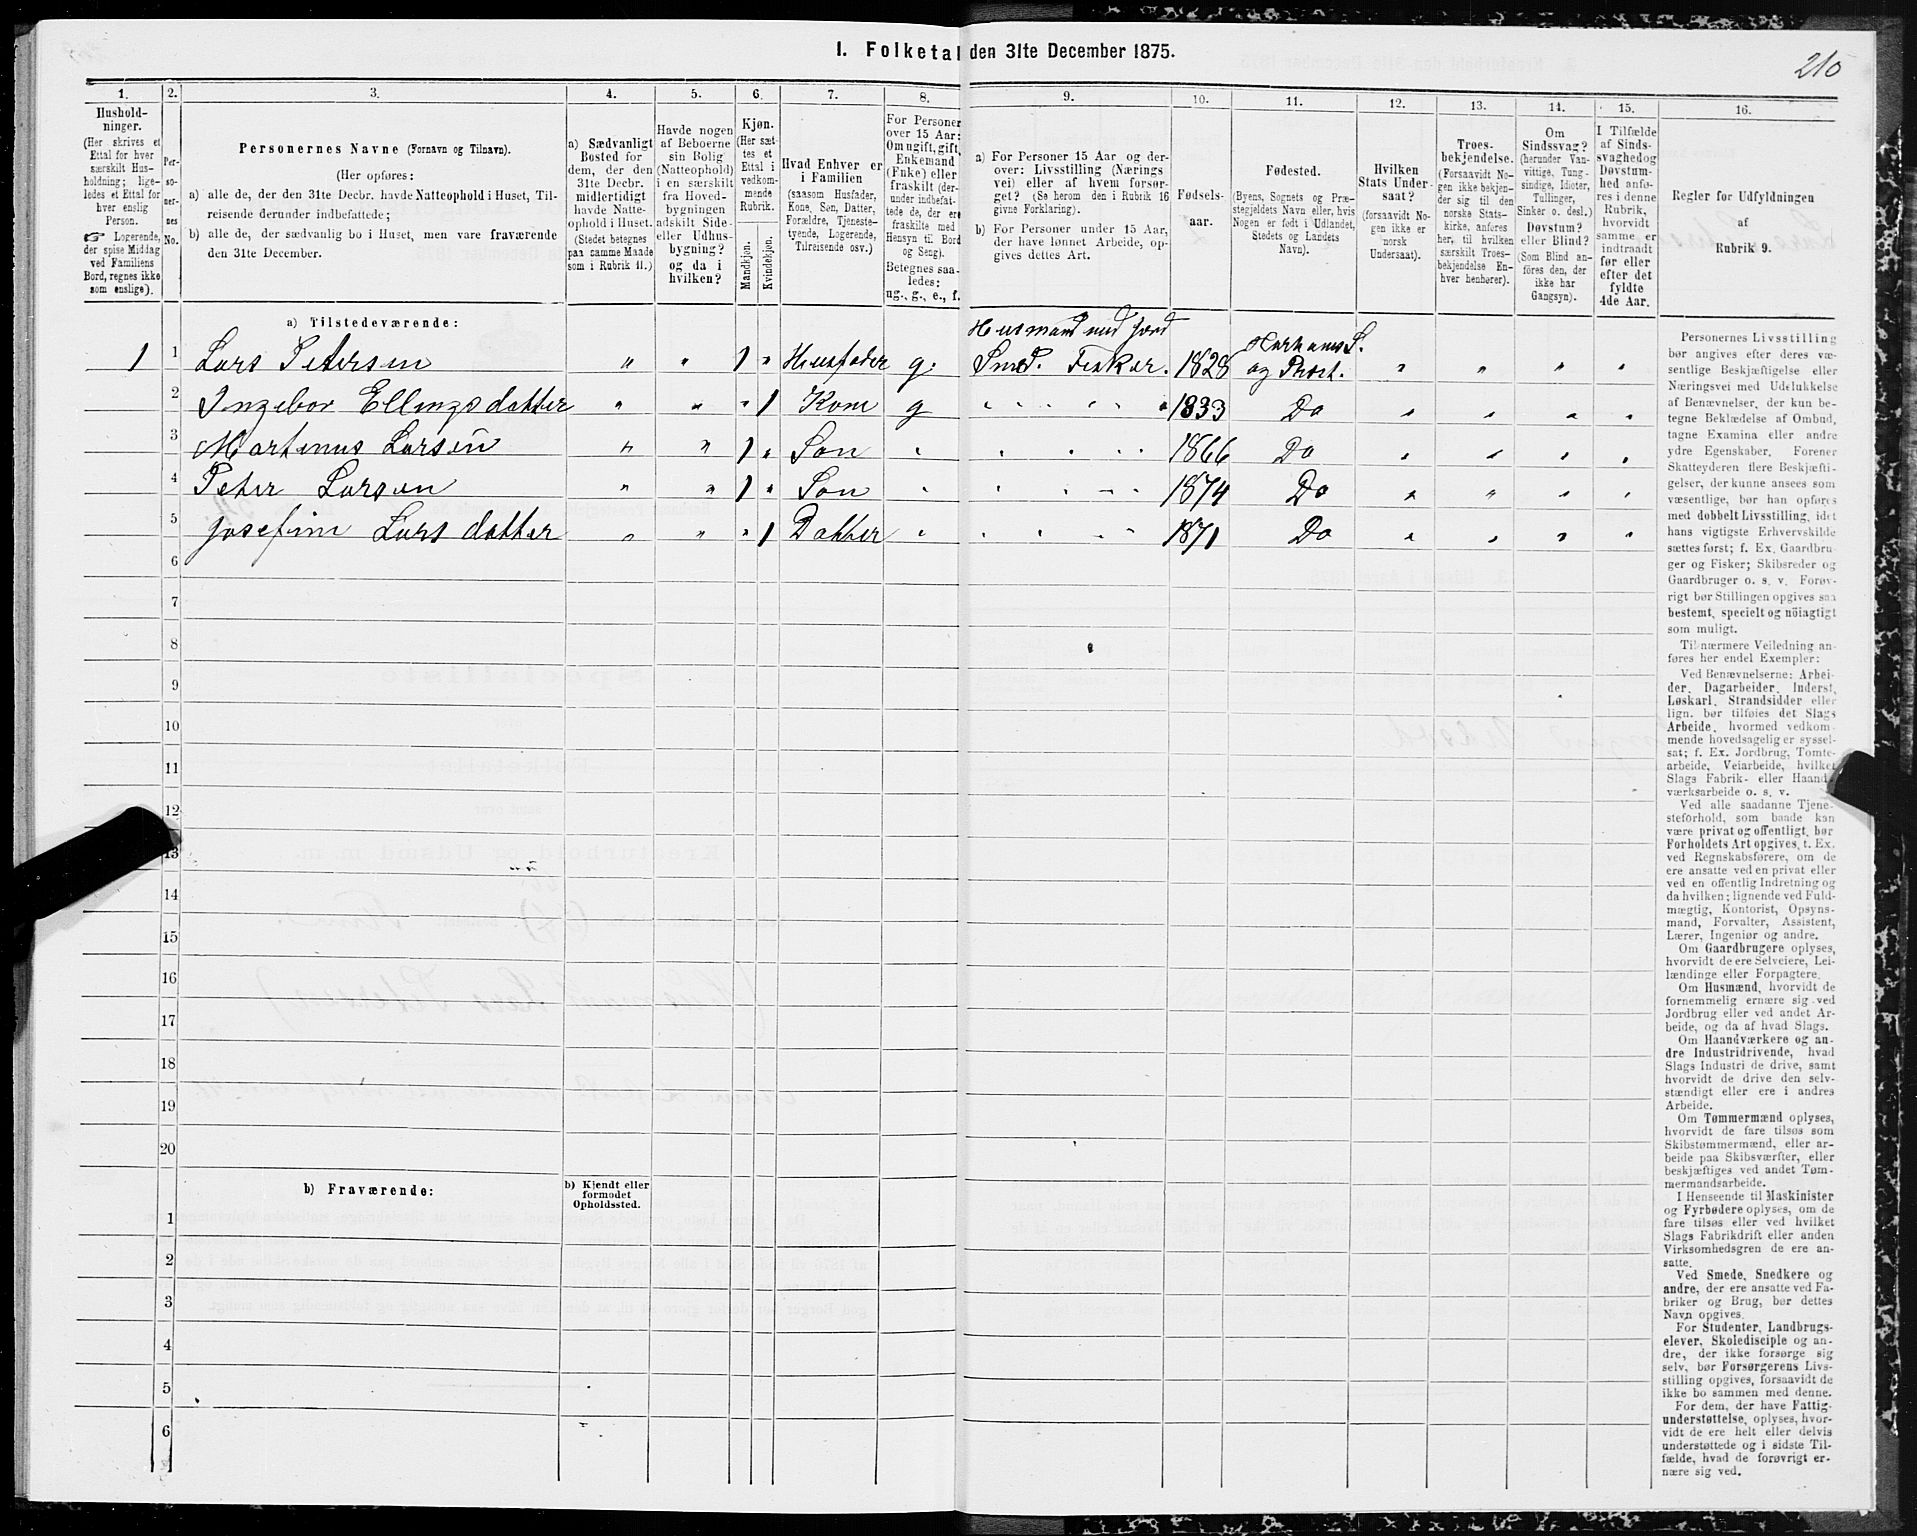 I. Folketal den 31te December 1875.
210
1. 2. 3. 4. 5. 6. 7. 8. 9. 10. 11. 12. 13. 14. 15. 16.
Hushold-
ninger.
(Her skrives et
Ettal for hver
særskilt Hus-
holdning; lige-
ledes et Ettal for
hver enslig
Person.
☞ Logerende,
der spise Middag
ved Familiens
Bord, regnes ikke
som enslige).
Per-
so-
ner-
nes
No.
Personernes Navne (Fornavn og Tilnavn).
(Her opføres:
a) alle de, der den 31te Decbr. havde Natteophold i Huset, Til-
reisende derunder indbefattede;
b) alle de, der sædvanlig bo i Huset, men vare fraværende
den 31te December.
a) Sædvanligt
Bosted for
dem, der den
31te Decbr.
midlertidigt
havde Natte-
ophold i Huset.
(Stedet betegnes
paa samme Maade
som i Rubrik 11.)
Havde nogen
af Beboerne
sin Bolig
(Natteophold)
i en særskilt
fra Hoved-
bygningen
adskilt Side-
eller Udhus-
bygning?
og da i
hvilken?
Kjøn.
(Her sæt-
tes et
Ettal i
vedkom-
mende
Rubrik.
Mandkjøn.
Kvindekjøn.
Hvad Enhver er
i Familien
(saasom Husfader,
Kone, Søn, Datter,
Forældre, Tjeneste-
tyende, Logerende,
Tilreisende osv.)
For Personer
over 15 Aar:
Om ugift, gift,
Enkemand
(Enke) eller
fraskilt (der-
under indbefat-
tede de, der ere
fraskilte med
Hensyn til Bord
og Seng).
Betegnes saa-
ledes:
ug., g., e., f.
a) For Personer 15 Aar og der-
over: Livsstilling (Nærings
vei) eller af hvem forsør-
get? (Se herom den i Rubrik 16
givne Forklaring).
b) For Personer under 15 Aar,
der have lønnet Arbeide, op-
gives dettes Art.
Fødsels-
aar.
Fødested.
(Byens, Sognets og Præ-
stegjeldets Navn eller, hvis
Nogen er født i Udlandet,
Stedets og Landets
Navn).
Hvilken
Stats Under-
saat?
(forsaavidt No-
gen ikke er
norsk
Undersaat).
Troes-
bekjendelse.
(Forsaavidt No-
gen ikke bekjen-
der sig til den
norske Stats-
kirke, anføres
her, til hvilken
særskilt Troes-
bekjendelse En-
hver henhører).
Om
Sindssvag?
(herunder Van-
vittige, Tung-
sindige, Idioter,
Tullinger,
Sinker o. desl.)
Døvstum?
eller Blind?
(Som Blind an-
føres den, der
ikke har
Gangsyn).
I Tilfælde
af Sinds-
svaghed og
Døvstum-
hed anfø-
res i denne
Rubrik,
hvorvidt
samme er
indtraadt
før eller
efter det
fyldte
4de Aar.
Regler for Udfyldningen
af
Rubrik 9.
a) Tilstedeværende:
Husmand med Jord
Harhams S.
1 1 Lars Petersen " " 1 " Husfader g. Smed. Fisker. 1828 og Præst. " " " "
2 Ingebor Ellingsdatter " " " 1 Kone g " " " " 1833 Do " " " "
3 Martinus Larsen " " 1 " Søn " " " " " 1866 Do " " " "
4 Peter Larsen " " 1 " Søn " " " " " 1874 Do " " " "
5 Josefine Larsdatter " " " 1 Datter " " " " " 1871 Do " " " "
6
7
8
9
10
11
12
13
14
15
16
17
18
19
20
b) Fraværende:
b) Kjendt eller
formodet
Opholdssted.
1
2
3
4
5
6
Personernes Livsstilling
bør angives efter deres væ-
sentlige Beskjæftigelse eller
Næringsvei med Udelukkelse
af Benævnelser, der kun be-
tegne Beklædelse af Ombud,
tagne Examina eller andre
ydre Egenskaber. Forener
Skatteyderen flere Beskjæfti-
gelser, der kunne ansees som
væsentlige, bør han opføres
med dobbelt Livsstilling, idet
hans vigtigste Erhvervskilde
sættes først; f. Ex. Gaardbru-
ger og Fisker; Skibsreder og
Gaardbruger o. s. v. Forøv-
rigt bør Stillingen opgives saa
bestemt, specielt og nöiagtigt
som muligt.
Til nærmere Veiledning an-
føres her endel Exempler:
Ved Benævnelserne: Arbei-
der, Dagarbeider, Inderst,
Løskarl, Strandsidder eller
lign. bør tilføies det Slags
Arbeide, hvormed vedkom-
mende hovedsagelig er syssel-
sat; f. Ex. Jordbrug, Tomte-
arbeide, Veiarbeide, hvilket
Slags Fabrik- eller Haand-
værksarbeide o. s. v.
Ved alle saadanne Tjene-
steforhold, som baade kan
være privat og offentligt, bør
Forholdets Art opgives, t. Ex.
ved Regnskabsførere, om de
ere ansatte ved en privat eller
ved en offentlig Indretning og
da hvilken; lignende ved Fuld-
mægtig, Kontorist, Opsyns-
mand, Forvalter, Assistent,
Lærer, Ingeniør og andre.
Om Gaardbrugere oplyses,
hvorvidt de ere Selveiere, Lei-
lændinge eller Forpagtere.
Om Husmænd, hvorvidt de
fornemmelig ernære sig ved
Jordbrug eller ved andet Ar-
beide, og da af hvad Slags.
Om Haandværkere og an-
dre Industridrivende, hvad
Slags Industri de drive, samt
hvorvidt de drive den selv-
stændigt eller ere i andres
Arbeide.
Om Tømmermænd oplyses,
hvorvidt de fare tilsøs som
Skibstømmermænd, eller ar-
beide paa Skibsværfter, eller
beskjæftiges ved andet Tøm-
mermandsarbeide.
I Henseende til Maskinister
og Fyrbødere oplyses, om de
fare tilsøs eller ved hvilket
Slags Fabrikdrift eller anden
Virksomhedsgren de ere an-
satte.
Ved Smede, Snedkere og
andre, der ere ansatte ved Fa-
briker og Brug, bør dettes
Navn opgives.
For Studenter, Landbrugs-
elever, Skoledisciple og an-
dre, der ikke forsørge sig
selv, bør Forsørgerens Livs-
stilling opgives, forsaavidt de
ikke bo sammen med denne.
For dem, der have Fattig-
understøttelse, oplyses, hvor-
vidt de ere helt eller delvis
understøttede og i sidste Til-
fælde, hvad de forøvrigt er-
nære sig ved.